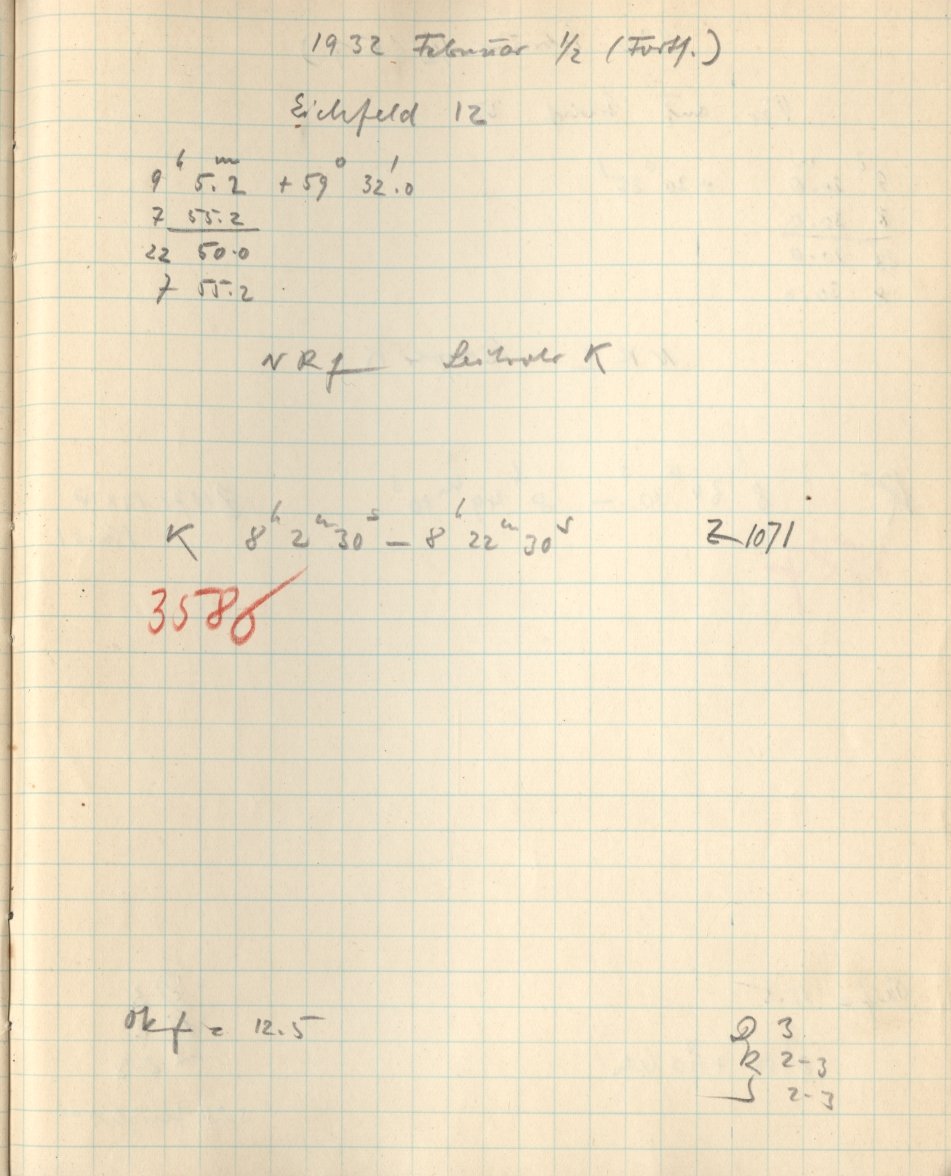 1932 Februar 1/2 (Forts.)
Eichfeld 12
9ʰ 5.2ᵐ +59° 32'.0
7 55.2
22 50.0
7 55.2
NRf Leitrohr K
K 8ʰ 2ᵐ 30ˢ — 8ʰ 22ᵐ 30ˢ Z 1071
3586
Okf = 12.5
Q 3
R 2-3
S 2-3